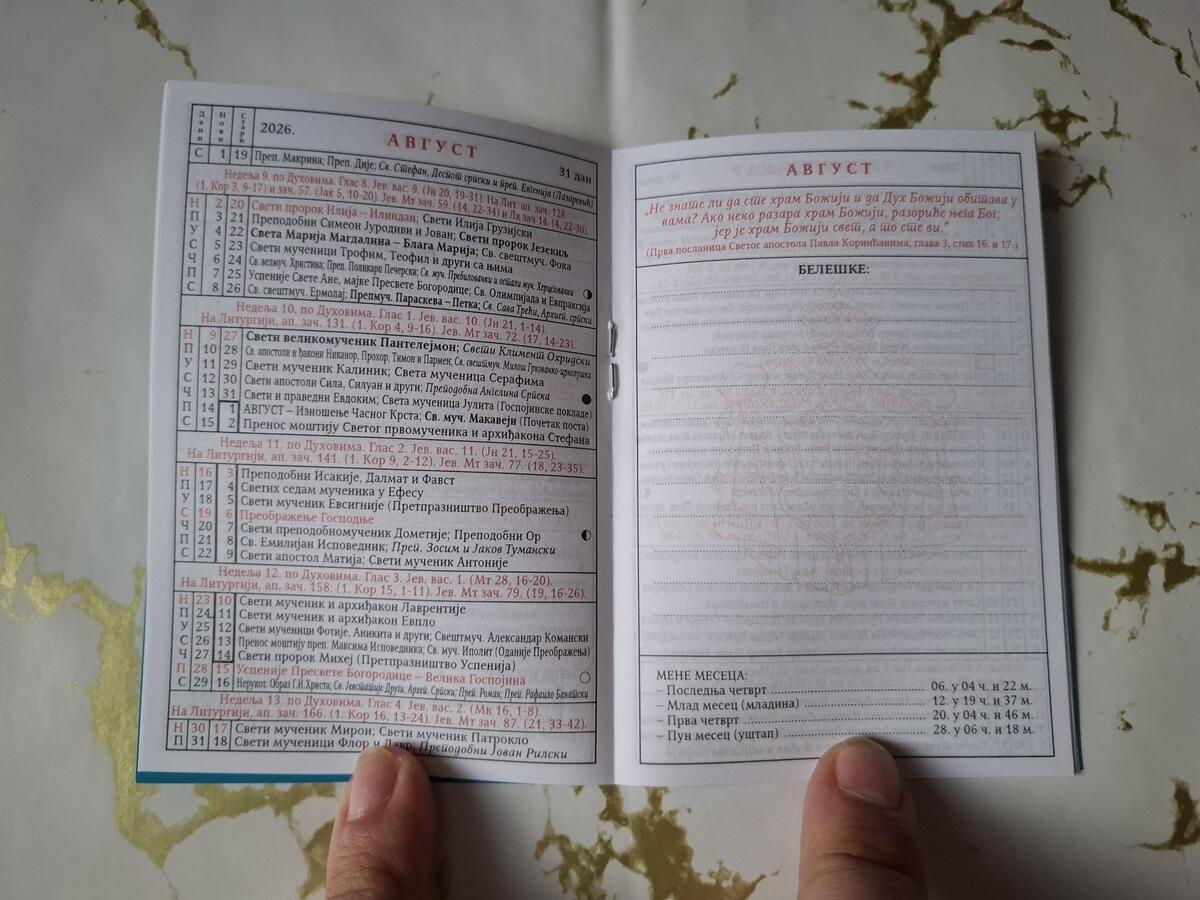 Дани Нови Стари 2026. АВГУСТ 31 дан
С 1 19 Преп. Макрина; Преп. Дије; Св. Стефан, Деспот српски и преп. Евгенија (Лазаревић)
Недеља 9. по Духовима. Глас 8. Јев. вас. 9. (Јн 20, 19-31). На Лит. ап. зач. 128.
(1. Кор 3, 9-17) и зач. 57. (Јак 5, 10-20). Јев. Мт зач. 59. (14, 22-34) и Лк зач 14. (4, 22-30).
Н 2 20 Свети пророк Илија – Илиндан; Свети Илија Грузијски
П 3 21 Преподобни Симеон Јуродиви и Јован; Свети пророк Језекиљ
У 4 22 Света Марија Магдалина – Блага Марија; Св. свештмуч. Фока
С 5 23 Свети мученици Трофим, Теофил и други са њима
Ч 6 24 Св. велмуч. Христина; Преп. Поликарп Печерски; Св. муч. Пребиловачки и остали муч. Херцеговачки
П 7 25 Успеније Свете Ане, мајке Пресвете Богородице; Св. Олимпијада и Евпраксија
С 8 26 Св. свештмуч. Ермолај; Препмуч. Параскева – Петка; Св. Сава Трећи, Архиеп. српски
Недеља 10. по Духовима. Глас 1. Јев. вас. 10. (Јн 21, 1-14).
На Литургији, ап. зач. 131. (1. Кор 4, 9-16). Јев. Мт зач. 72. (17, 14-23).
Н 9 27 Свети великомученик Пантелејмон; Свети Климент Охридски
П 10 28 Св. апостоли и ђакони Никанор, Прохор, Тимон и Пармен; Св. свештмуч. Милош Грковачко-црнолушки
У 11 29 Свети мученик Калиник; Света мученица Серафима
С 12 30 Свети апостоли Сила, Силуан и други; Преподобна Ангелина Српска
Ч 13 31 Свети и праведни Евдоким; Света мученица Јулита (Госпојинске покладе)
П 14 1 АВГУСТ – Изношење Часног Крста; Св. муч. Макавеји (Почетак поста)
С 15 2 Пренос моштију Светог првомученика и архиђакона Стефана
Недеља 11. по Духовима. Глас 2. Јев. вас. 11. (Јн 21, 15-25).
На Литургији, ап. зач. 141. (1. Кор 9, 2-12). Јев. Мт зач. 77. (18, 23-35).
Н 16 3 Преподобни Исакије, Далмат и Фавст
П 17 4 Светих седам мученика у Ефесу
У 18 5 Свети мученик Евсигније (Претпразништво Преображења)
С 19 6 Преображење Господње
Ч 20 7 Свети преподобномученик Дометије; Преподобни Ор
П 21 8 Св. Емилијан Исповедник; Преп. Зосим и Јаков Тумански
С 22 9 Свети апостол Матија; Свети мученик Антоније
Недеља 12. по Духовима. Глас 3. Јев. вас. 1. (Мт 28, 16-20).
На Литургији, ап. зач. 158. (1. Кор 15, 1-11). Јев. Мт зач. 79. (19, 16-26).
Н 23 10 Свети мученик и архиђакон Лаврентије
П 24 11 Свети мученик и архиђакон Евпло
У 25 12 Свети мученици Фотије, Аникита и други; Свештмуч. Александар Комански
С 26 13 Пренос моштију преп. Максима Исповедника; Св. муч. Иполит (Оданије Преображења)
Ч 27 14 Свети пророк Михеј (Претпразништво Успенија)
П 28 15 Успеније Пресвете Богородице – Велика Госпојина
С 29 16 Нерукот. Образ Г.И. Христа; Св. Јевстатије Други, Архиеп. Српски; Преп. Роман; Преп. Рафаило Банатски
Недеља 13. по Духовима. Глас 4. Јев. вас. 2. (Мк 16, 1-8).
На Литургији, ап. зач. 166. (1. Кор 16, 13-24). Јев. Мт зач. 87. (21, 33-42).
Н 30 17 Свети мученик Мирон; Свети мученик Патрокло
П 31 18 Свети мученици Флор и Лавр; Преподобни Јован Рилски
АВГУСТ
„Не знате ли да сте храм Божији и да Дух Божији обитава у
вама? Ако неко разара храм Божији, разориће њега Бог;
јер је храм Божији свет, а то сте ви.“
(Прва посланица Светог апостола Павла Коринћанима, глава 3, стих 16. и 17.)
БЕЛЕШКЕ:
МЕНЕ МЕСЕЦА:
– Последња четврт ........ 06. у 04 ч. и 22 м.
– Млад месец (младина) ........ 12. у 19 ч. и 37 м.
– Прва четврт ........ 20. у 04 ч. и 46 м.
– Пун месец (уштап) ........ 28. у 06 ч. и 18 м.